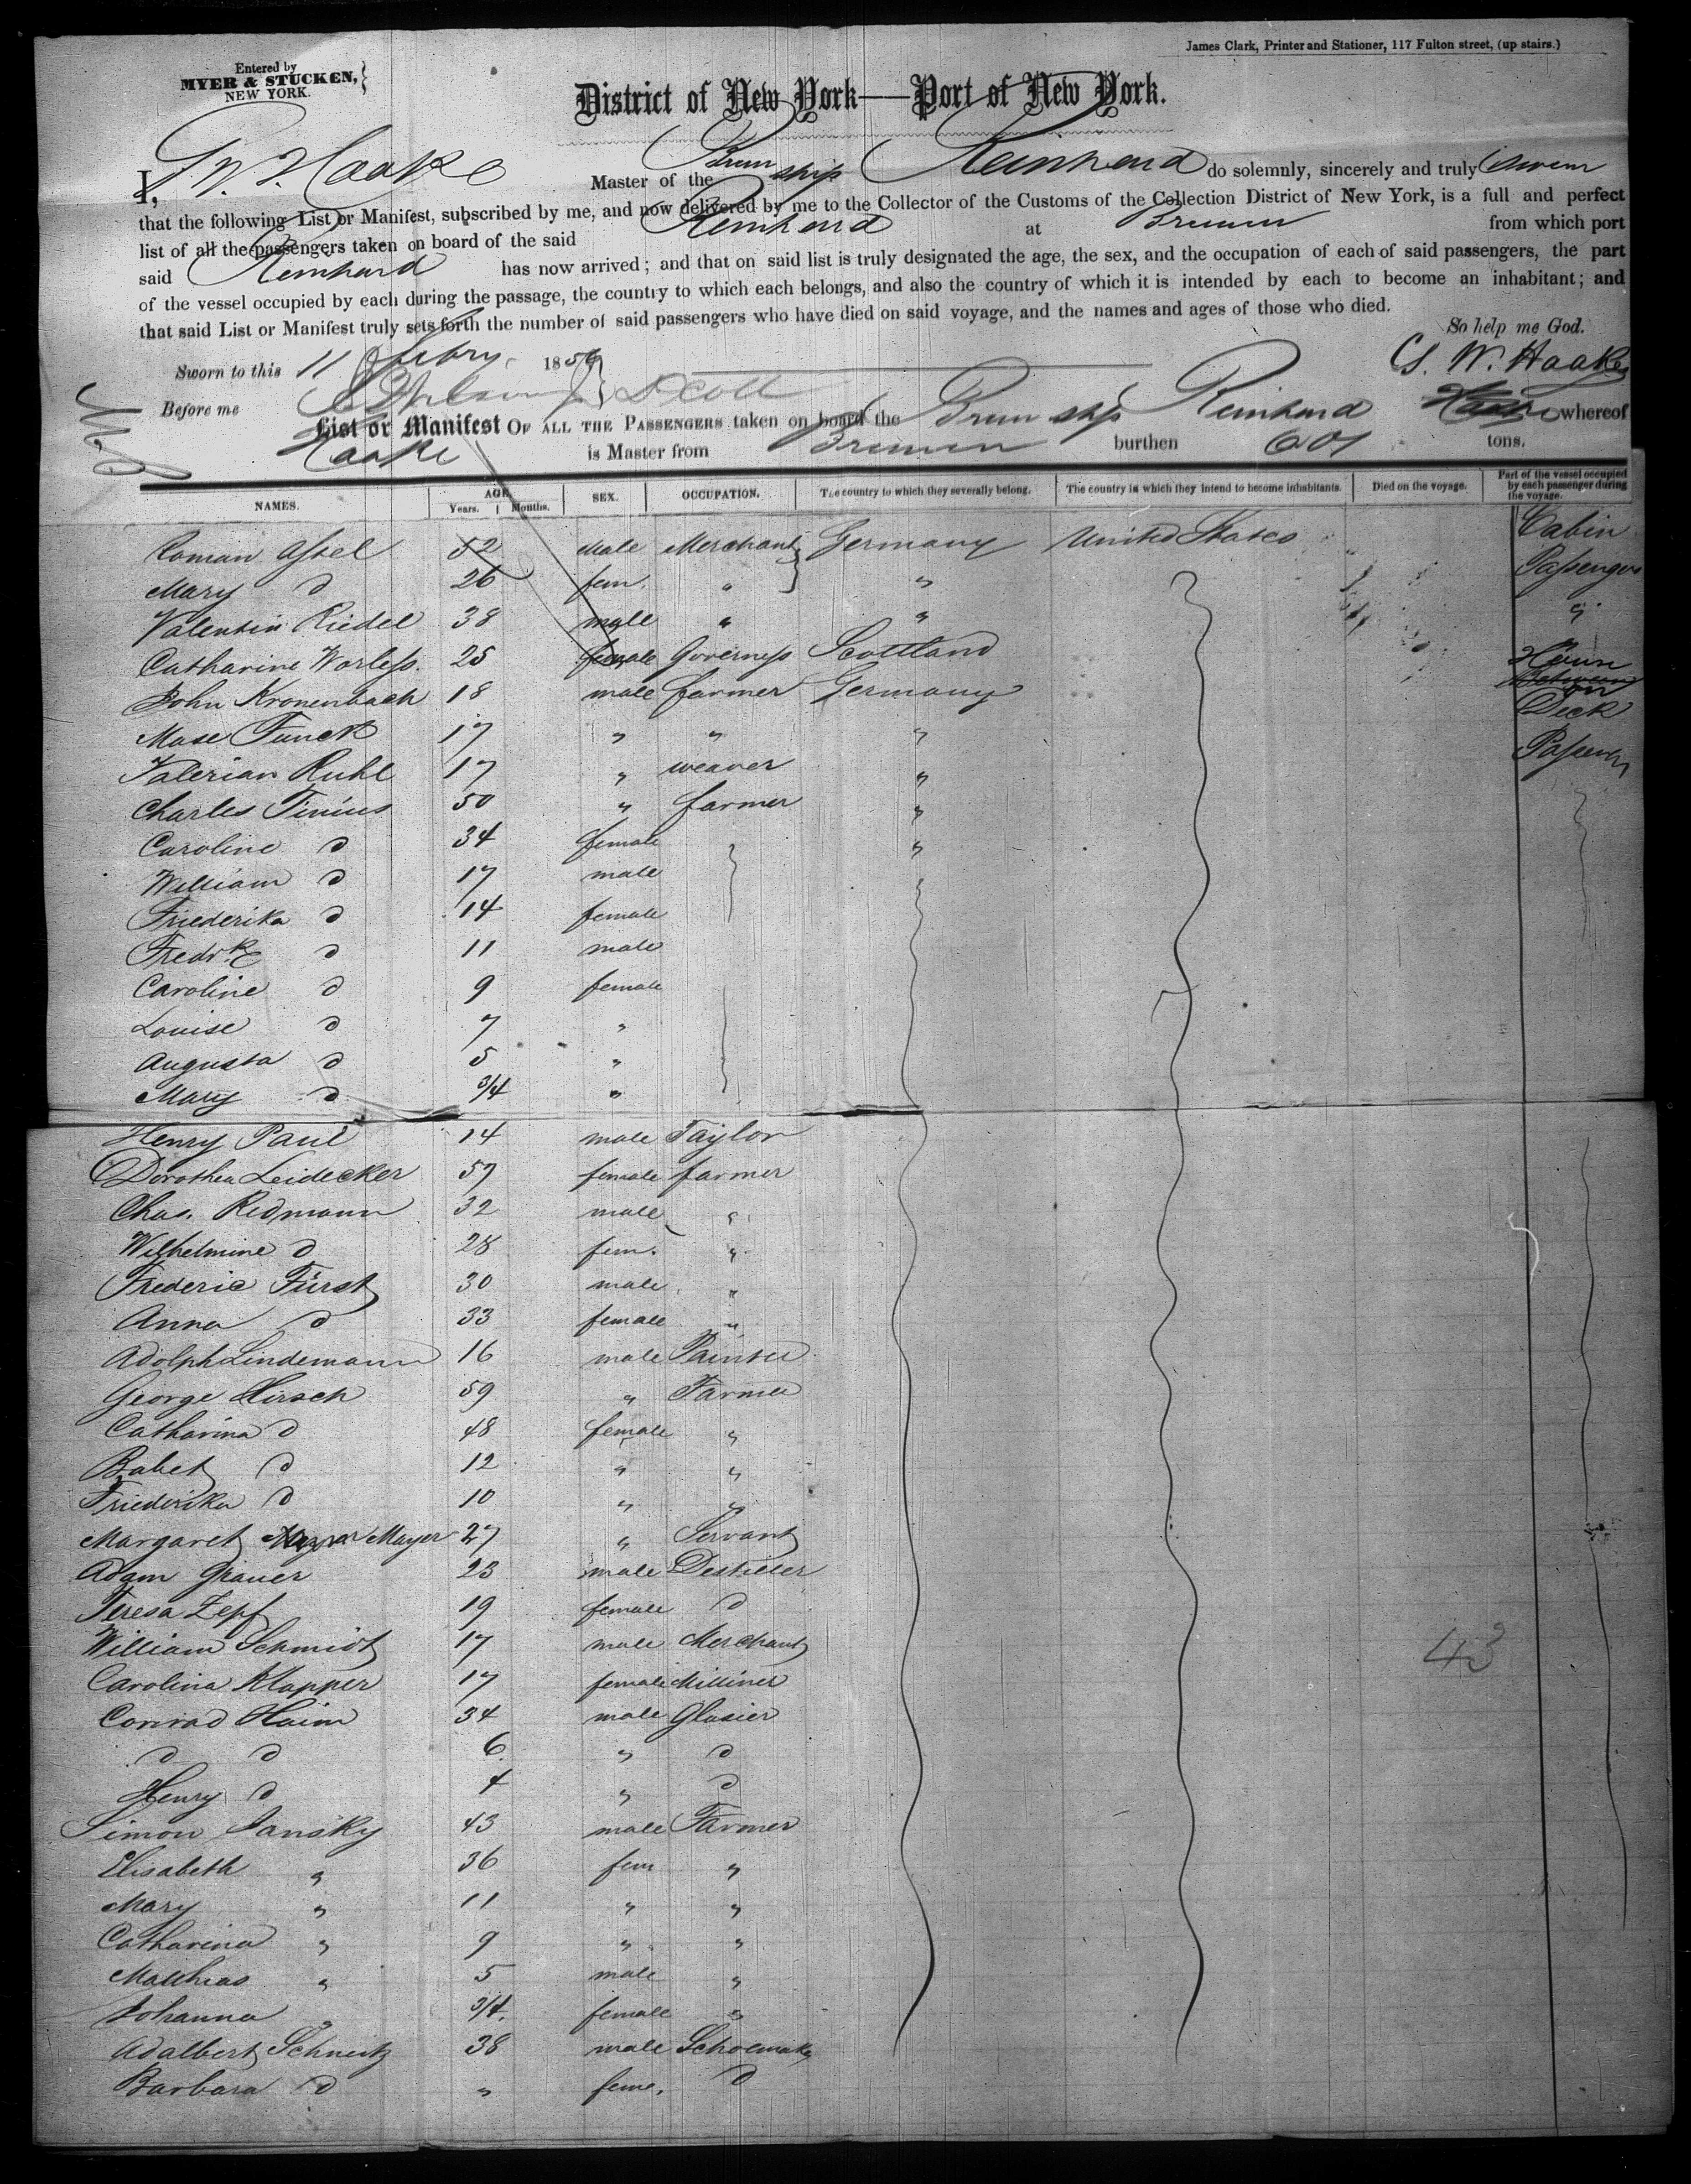 James Clark, Printer and Stationer, 117 Fulton street, (up stairs.)
Entered by
MYER & STUCKEN,
NEW YORK.
District of New York—Port of New York.
I, Haake Master of the Brem ship Reinhard do solemnly, sincerely and truly swear
that the following List or Manifest, subscribed by me, and now delivered by me to the Collector of the Customs of the Collection District of New York, is a full and perfect
list of all the passengers taken on board of the said Reinhard at Bremen from which port
said Reinhard has now arrived; and that on said list is truly designated the age, the sex, and the occupation of each of said passengers, the part
of the vessel occupied by each during the passage, the country to which each belongs, and also the country of which it is intended by each to become an inhabitant; and
that said List or Manifest truly sets forth the number of said passengers who have died on said voyage, and the names and ages of those who died.
So help me God.
Sworn to this 11 Febry. 185
W. Haake
Before me
List or Manifest OF ALL THE PASSENGERS taken on board the Brem ship Reinhard whereof
Haake is Master from Bremen burthen 601 tons.
NAMES. AGE. Years. Months. SEX. OCCUPATION. The country to which they severally belong. The country in which they intend to become inhabitants. Died on the voyage. Part of the vessel occupied by each passenger during the voyage.
Roman 52 male Merchant Germany United States Cabin
Mary d 26 fem. " " Passengers
Valentin Riedel 38 male " " "
Catharine Worless. 25 female Governess Scottland House
John Kronenbach 18 male farmer Germany on Deck
Funck 17 " " "
Valerian Ruhl 17 " weaver "
Charles Tinius 50 " farmer "
Caroline d 34 female "
William d 17 male
Friederika d 14 female
Fredrk d 11 male
Caroline d 9 female
Louise d 7 "
Augusta d 5 "
Mary d 3/4 "
Henry Paul 14 male Taylor
Dorothea Leidecker 57 female farmer
Chas. Redmann 32 male "
Wilhelmine d 28 fem. "
Frederic Fürst 30 male "
Anna d 33 female "
Adolph Lindemann 16 male Painter
George Hirsch 59 " Farmer
Catharina d 48 female "
Babet d 12 " "
Friederika d 10 " "
Margaret Mayer 27 " Servant
Adam Grauer 23 male Destieler
Teresa Zepf 19 female d
William Schmidt 17 male Merchant
43
Carolina Klapper 17 female Milliner
Conrad Haim 34 male Glasier
d d 6 " d
Henry d 4 " d
Simon Jansky 43 male Farmer
Elisabeth " 36 fem "
Mary " 11 " "
Catharina " 9 " "
Matthias " 5 male "
Johanna " 3/4. female "
Adalbert 38 male Schoemaker
Barbara d " feme. d